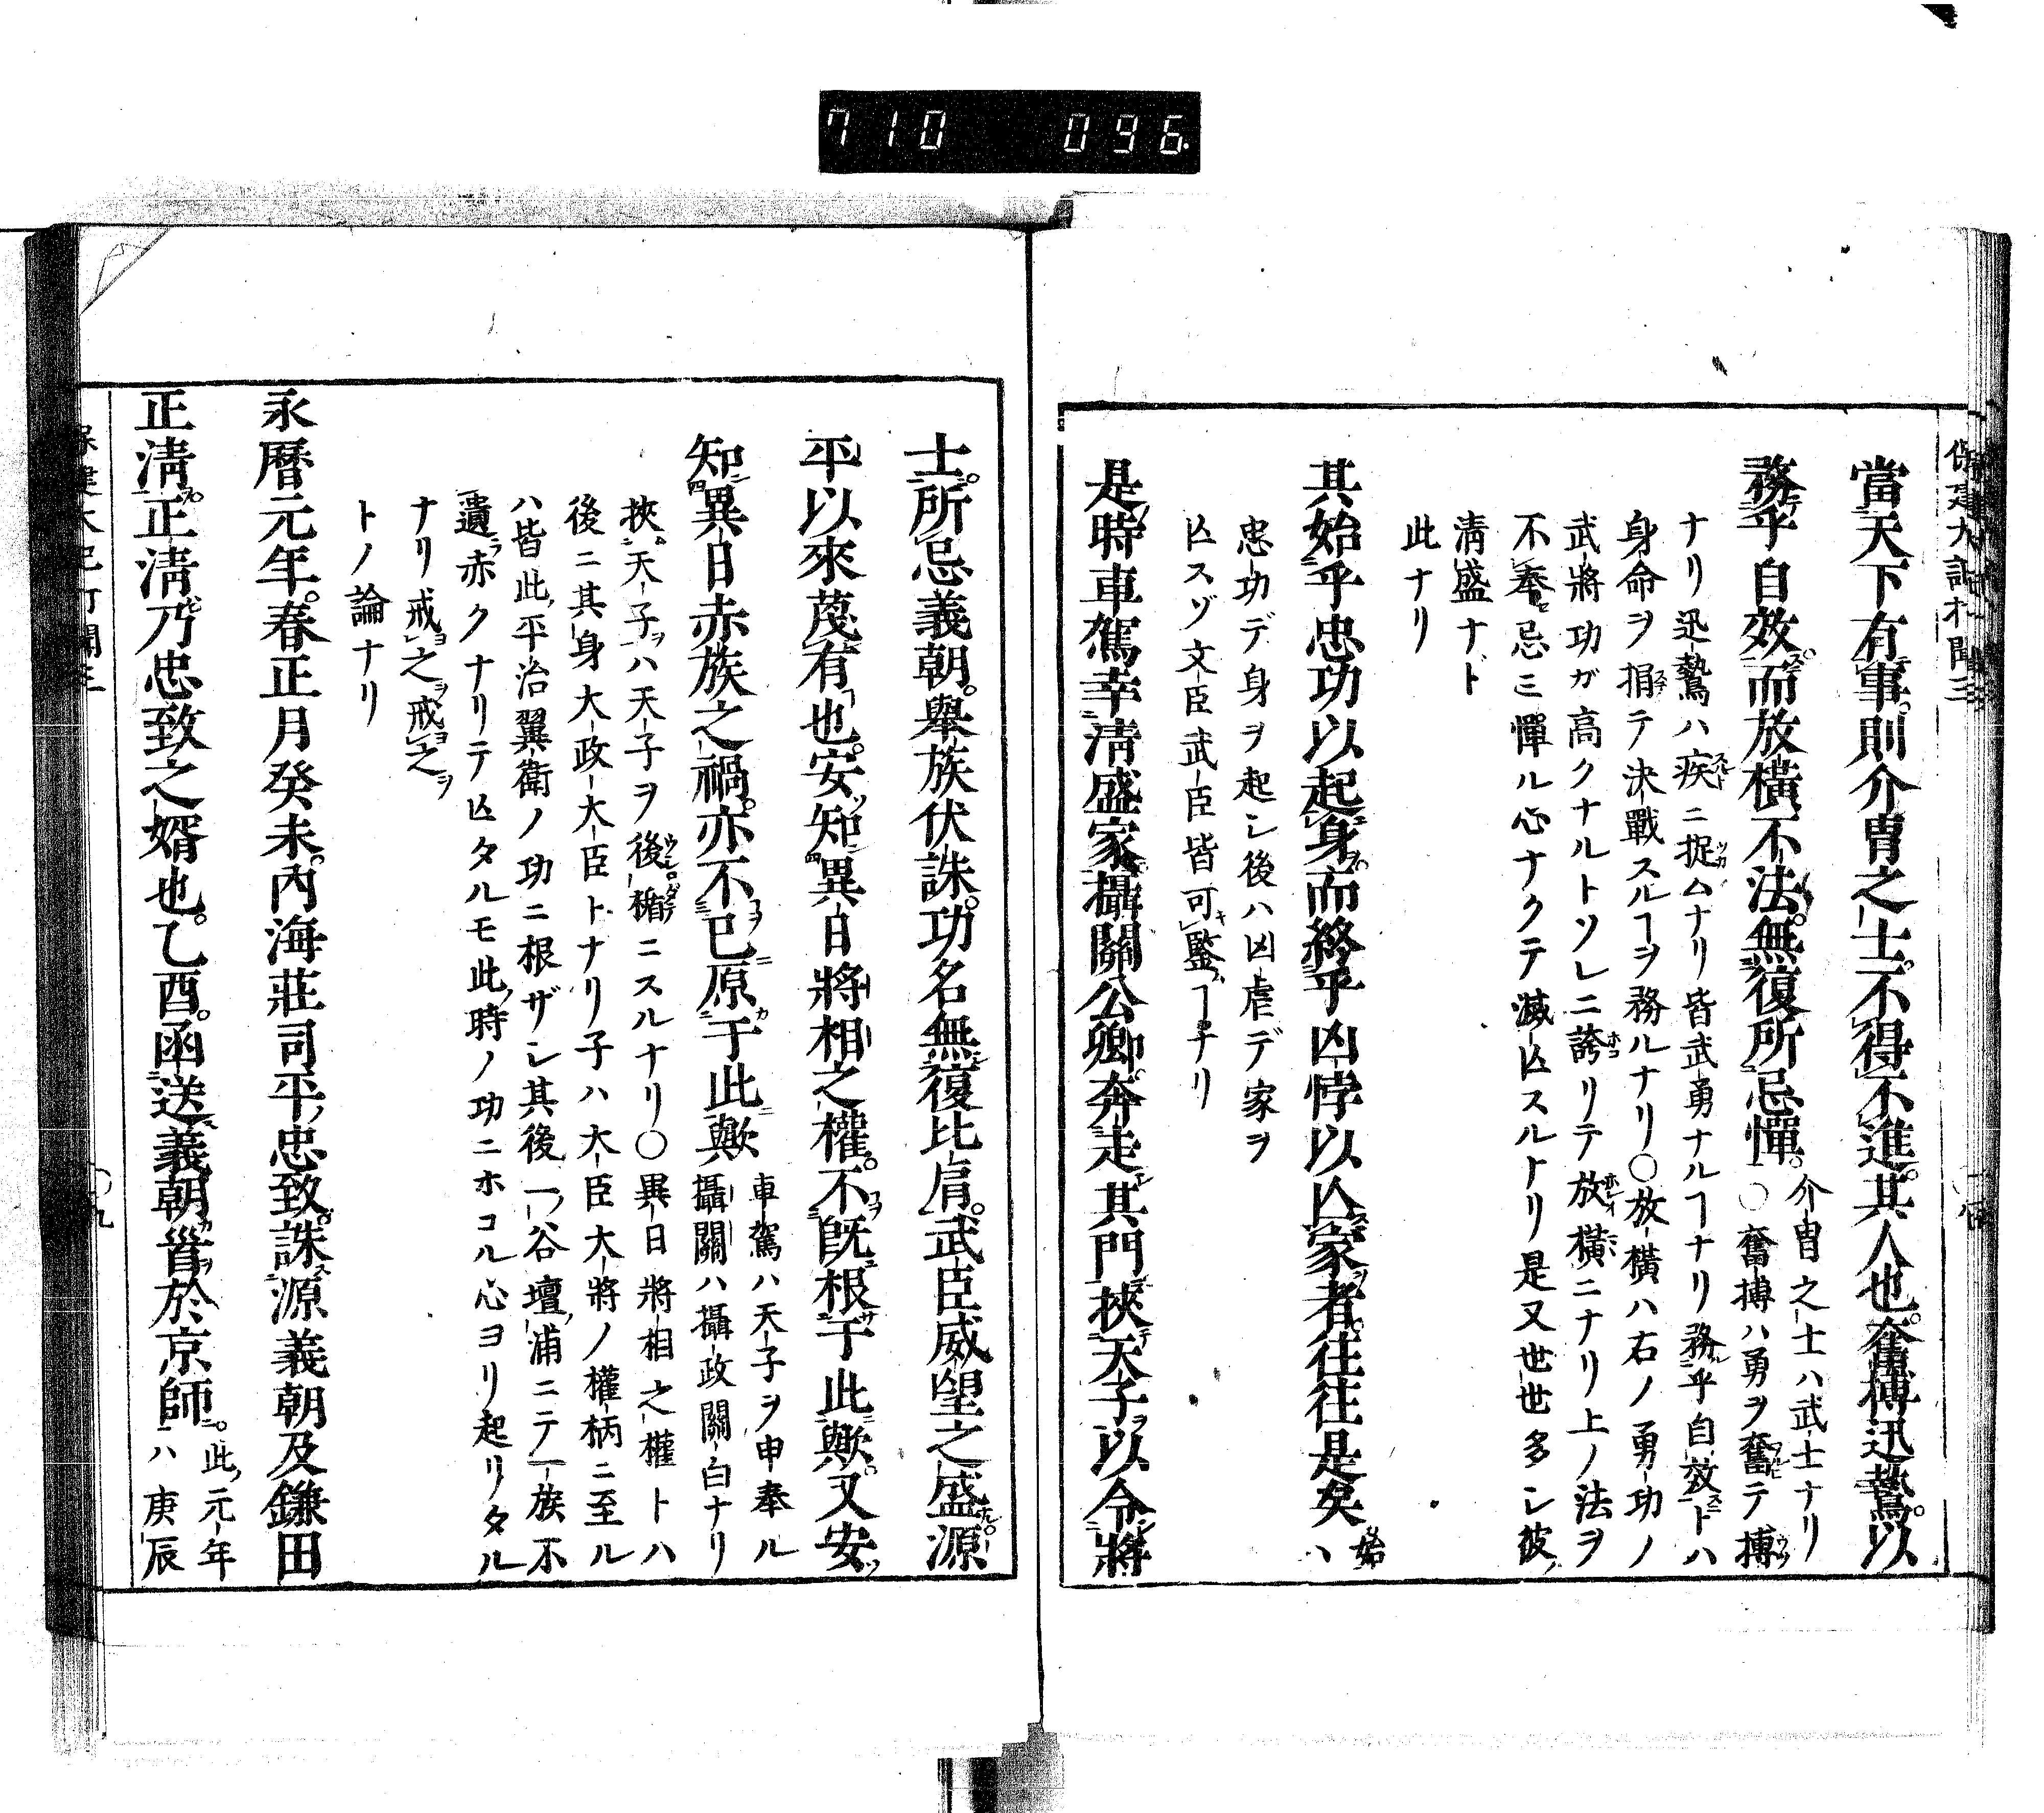 710 096
當天下有事。則介冑之士。不得不進。其人也。奮搏迅鷙。以
務乎自效。而放橫不法。無復所忌憚。
介冑之士ハ武士ナリ
○奮搏ハ勇ヲ奮テ搏
ナリ迅鷙ハ疾ニ捉ムナリ皆武勇ナルヿナリ務乎自效トハ
身命ヲ捐テ決戰スルヿヲ務ルナリ○放橫ハ右ノ勇功ノ
武將功ガ高クナルトソレニ誇リテ放橫ニナリ上ノ法ヲ
不奉忌ミ憚ル心ナクテ滅亾スルトリ是又世世多シ彼
淸盛ナド
此ナリ
其始乎忠功以起身。而終乎凶悖以亾家者。往往是矣
始
ハ
忠功デ身ヲ起シ後ハ凶虐デ家ヲ
亾スゾ文臣武臣皆可鑒ヿヂリ
是時車駕幸淸盛家。攝關公卿。奔走其門。挾天子以令將
士。所忌義朝。擧族伏誅。功名無復比肩。武臣威望之盛。源
平以來蔑有也。安知異日將相之權。不旣根于此歟。又安
知異日赤族之禍。亦不已原于此歟
車駕ハ天子ヲ申奉ル
攝關ハ攝政關白ナリ
挾天子ヲハ天子ヲ後楯ニスルナリ○異日將相之權トハ
後ニ其身大政大臣トナリ子ハ大臣大將ノ權柄ニ至ル
ハ皆此平治翼衛ノ功ニ根ザシ其後一谷壇浦ニテ一族不
遺赤クナリテ亾タルモ此時ノ功ニホコル心ヨリ起リタル
ナリ戒之戒之
トノ論ナリ
永曆元年。春正月癸未。內海莊司平忠致。誅源義朝及鎌田
正淸。正淸乃忠致之婿也。乙酉。函送義朝首於京師。
此元年
ハ庚辰